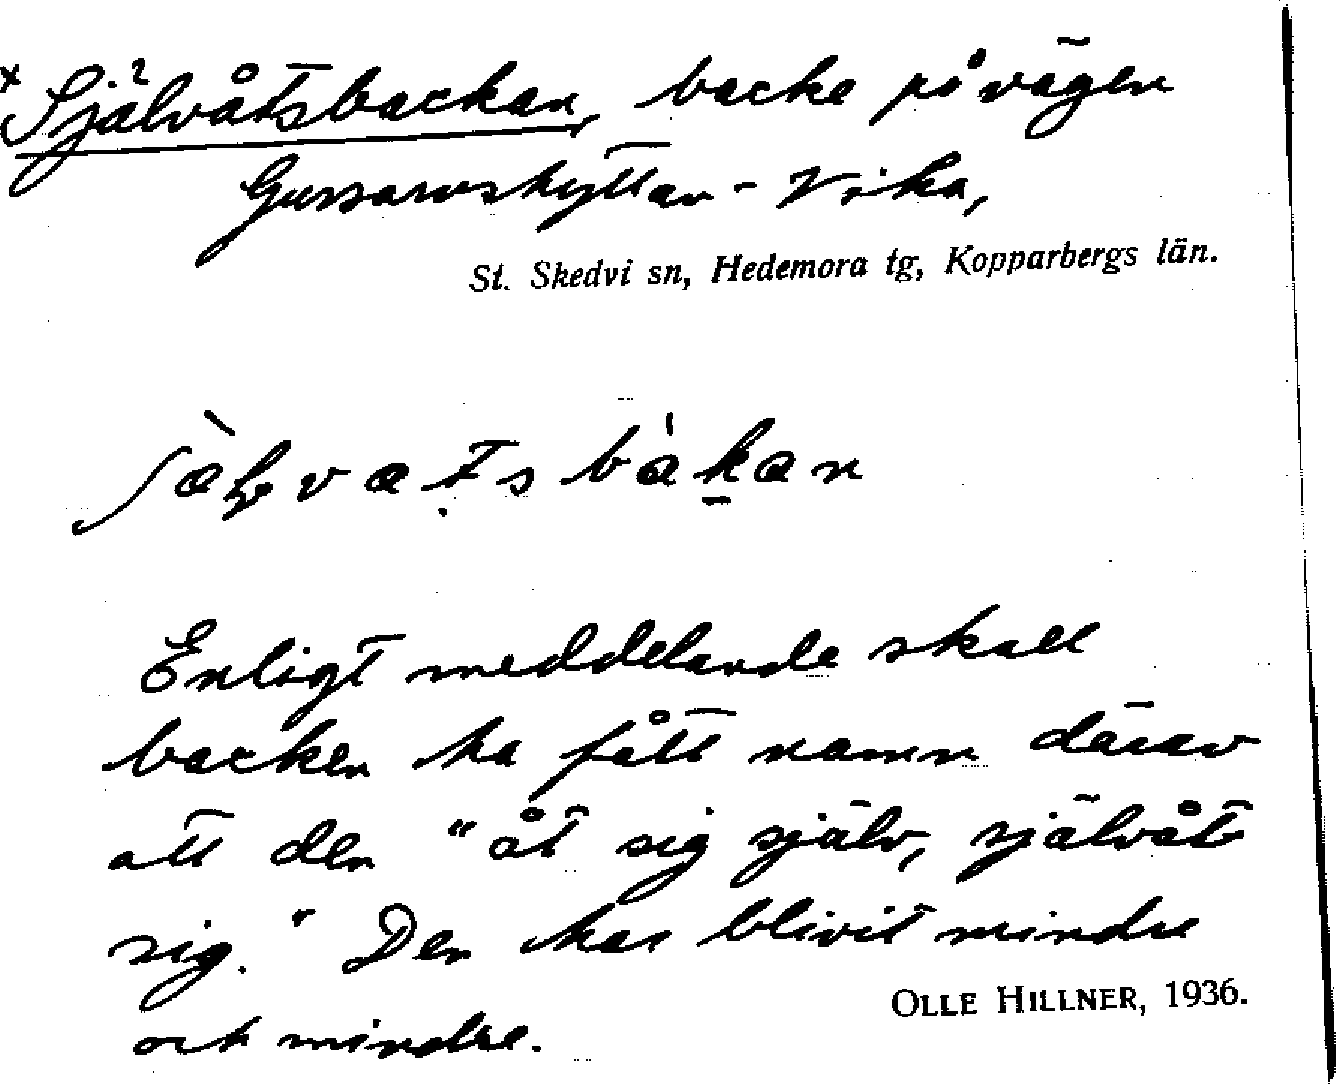 *Självåtsbackan, backe på vägen
Gussarvshyttan - Vika,
St. Skedvi sn, Hedemora tg, Kopparbergs län.
Enligt meddelande skall
backen ha fått namn därav
att den "åt sig själv, självåt
sig." Den har blivit mindre
och mindre.
OLLE HILLNER, 1936.